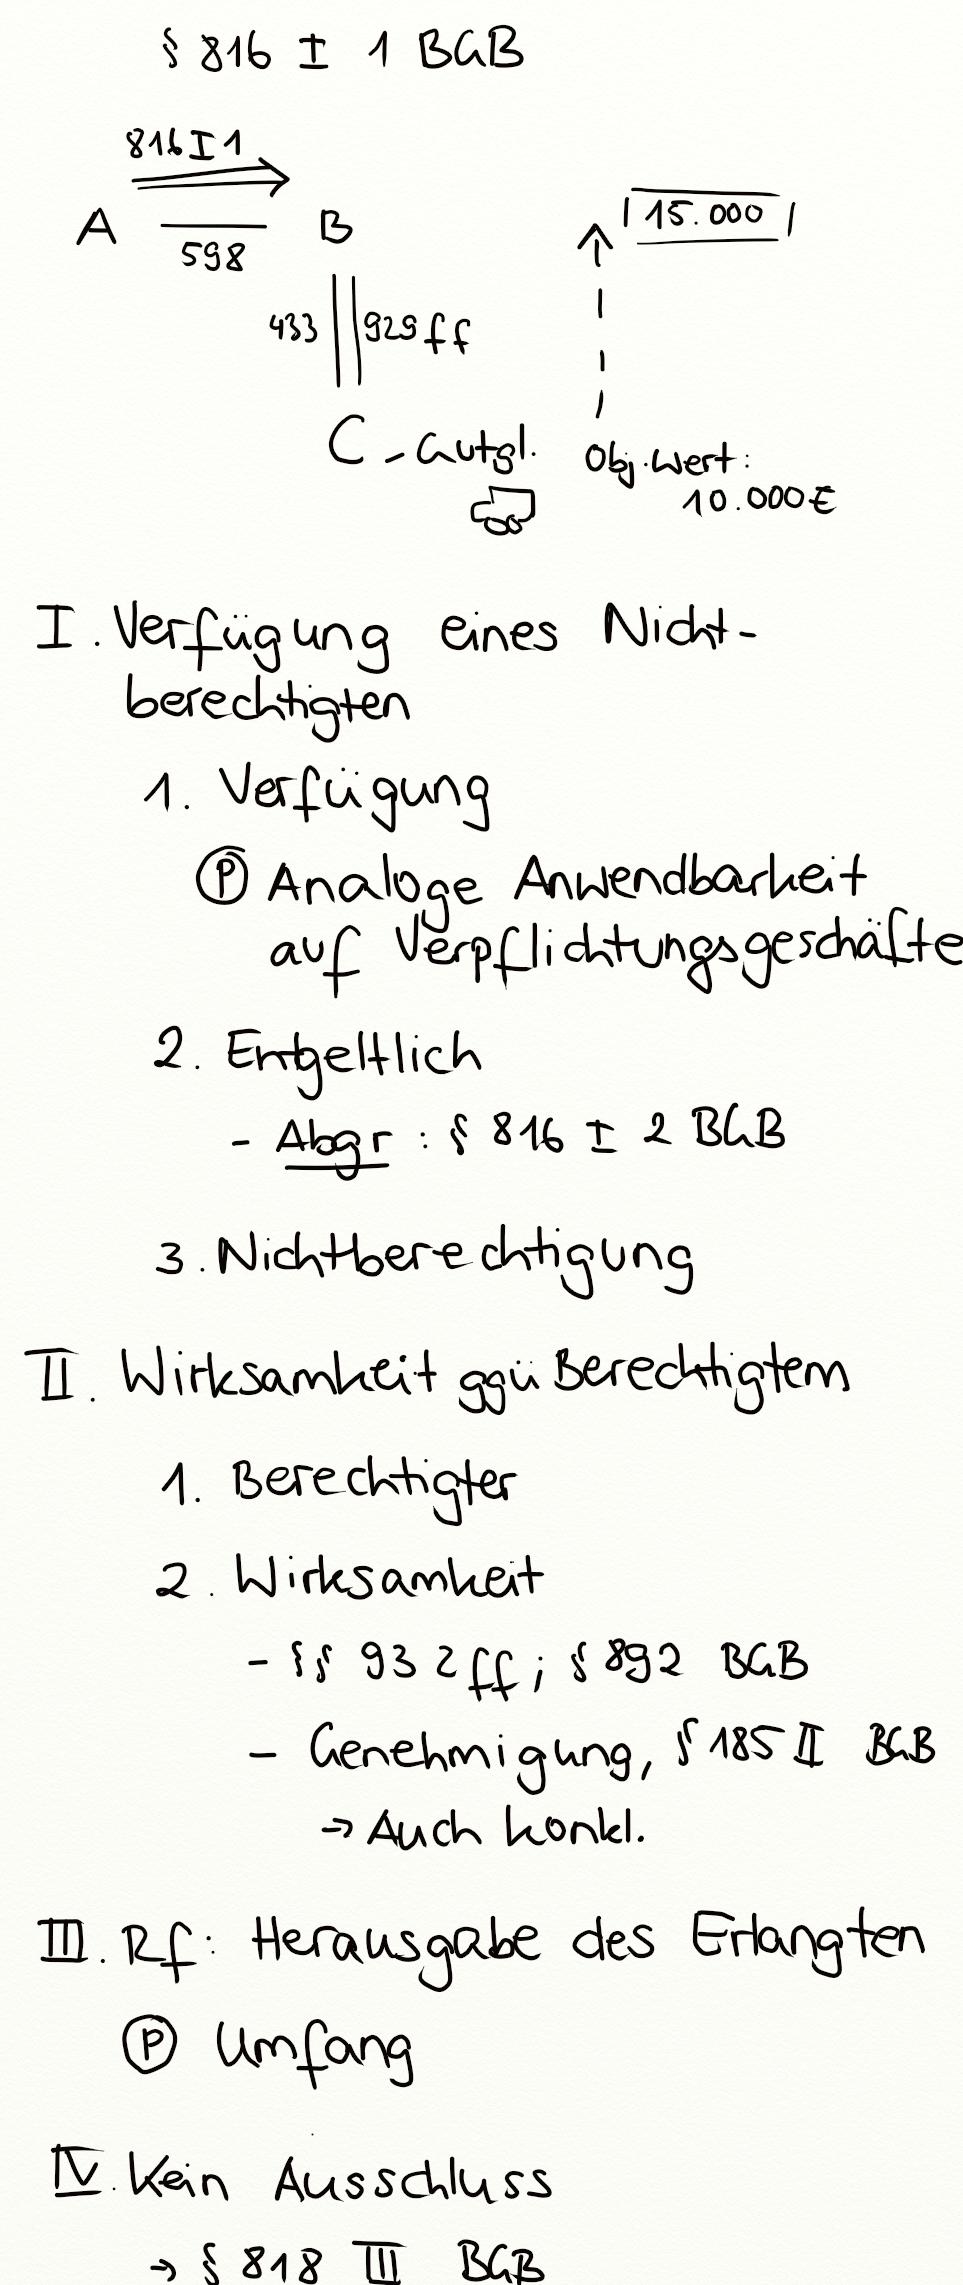 § 816 I 1 BGB
816 I 1
A
598
B
15.000
433
929 ff
C - Gutgl.
Obj. Wert:
10.000€
I. Verfügung eines Nicht-
berechtigten
1. Verfügung
P Analoge Anwendbarkeit
auf Verpflichtungsgeschäfte
2. Entgeltlich
- Abgr : § 816 I 2 BGB
3. Nichtberechtigung
II. Wirksamkeit ggü Berechtigtem
1. Berechtigter
2. Wirksamkeit
- §§ 932 ff ; § 892 BGB
- Genehmigung, § 185 II BGB
→ Auch konkl.
III. Rf: Herausgabe des Erlangten
P Umfang
IV. Kein Ausschluss
→ § 818 III BGB